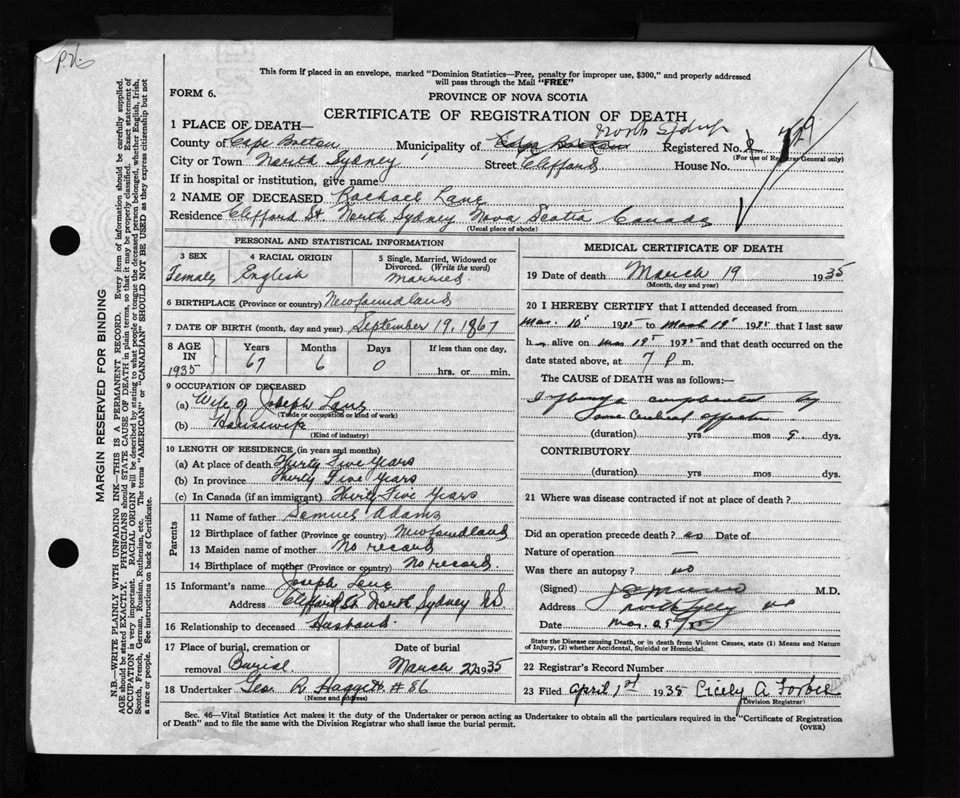 This form if placed in an envelope, marked "Dominion Statistics—Free, penalty for improper use, $300," and properly addressed
will pass through the Mail "FREE"
FORM 6.
PROVINCE OF NOVA SCOTIA
CERTIFICATE OF REGISTRATION OF DEATH
1 PLACE OF DEATH—
North Sydney
County of Cape Breton Municipality of Cape Breton Registered No.
(For use of Registrar General only)
City or Town North Sydney Street Clifford House No.
If in hospital or institution, give name
2 NAME OF DECEASED Rachael Lane
Residence Clifford St. North Sydney Nova Scotia Canada
(Usual place of abode)
PERSONAL AND STATISTICAL INFORMATION
3 SEX 4 RACIAL ORIGIN 5 Single, Married, Widowed or Divorced. (Write the word)
Female English Married
6 BIRTHPLACE (Province or country) Newfoundland
7 DATE OF BIRTH (month, day and year) September 19, 1867
8 AGE IN 1935 Years Months Days If less than one day,
67 6 0 hrs. or min.
9 OCCUPATION OF DECEASED
(a) Wife of Joseph Lane
(Trade or occupation or kind of work)
(b) Housewife
(Kind of industry)
10 LENGTH OF RESIDENCE (in years and months)
(a) At place of death Thirty Five Years
(b) In province Thirty Five Years
(c) In Canada (if an immigrant) Thirty Five Years
Parents
11 Name of father Samuel Adams
12 Birthplace of father (Province or country) Newfoundland
13 Maiden name of mother No record
14 Birthplace of mother (Province or country) No record.
15 Informant's name Joseph Lane
Address Clifford St North Sydney N.S.
16 Relationship to deceased Husband
17 Place of burial, cremation or removal Burial Date of burial March 22 1935
18 Undertaker Geo. R Haggett # 86
(Name and address)
MEDICAL CERTIFICATE OF DEATH
19 Date of death March 19 1935
(Month, day and year)
20 I HEREBY CERTIFY that I attended deceased from
Mar. 10 1935 to March 19 1935 that I last saw
h alive on Mar 19 1935 and that death occurred on the
date stated above, at 7 P m.
The CAUSE of DEATH was as follows:—
complicated by
some cerebral
(duration) yrs mos 9 dys.
CONTRIBUTORY
(duration) yrs mos dys.
21 Where was disease contracted if not at place of death?
Did an operation precede death? no Date of
Nature of operation —
Was there an autopsy? no
(Signed) M.D.
Address
Date Mar.
State the Disease causing Death, or in death from Violent Causes, state (1) Means and Nature
of Injury, (2) whether Accidental, Suicidal or Homicidal.
22 Registrar's Record Number
23 Filed April 1st 1935 Cicely A Forbes
(Division Registrar)
Sec. 46—Vital Statistics Act makes it the duty of the Undertaker or person acting as Undertaker to obtain all the particulars required in the "Certificate of Registration
of Death" and to file the same with the Division Registrar who shall issue the burial permit.
(OVER)
MARGIN RESERVED FOR BINDING
N.B.—WRITE PLAINLY WITH UNFADING INK—THIS IS A PERMANENT RECORD. Every item of information should be carefully supplied.
AGE should be stated EXACTLY. PHYSICIANS should STATE CAUSE OF DEATH in plain terms, so that it may be properly classified. Exact statement of
OCCUPATION is very important. RACIAL ORIGIN will be described by stating to what people or tongue the deceased person belonged, whether English, Irish,
Scotch, French, German, Russian, Ruthenian, etc. The terms "AMERICAN" or "CANADIAN" SHOULD NOT BE USED as they express citizenship but not
a race or people. See instructions on back of Certificate.